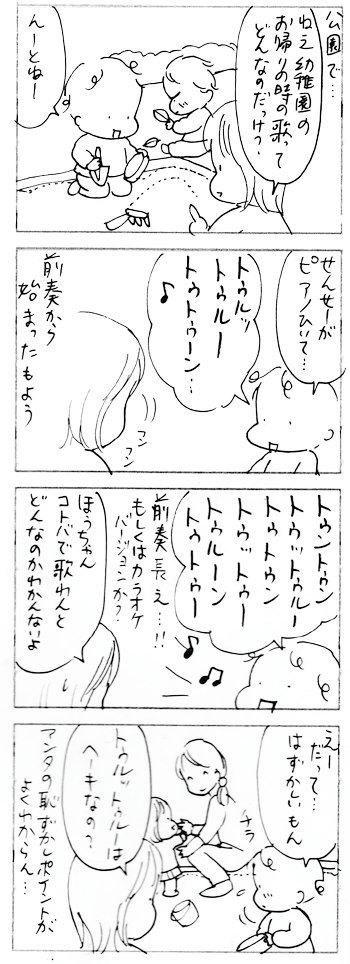 公園で…
ねえ幼稚園の
お帰りの時の歌って
どんなのだっけ?
んーとねー
せんせーが
ピアノひいて…
トゥルッ
トゥルー
トゥトゥーン…♪
前奏から
始まったもよう
フンフン
トゥントゥン
トゥットゥルー
トゥトゥン
トゥットゥー
トゥルーン
トゥトゥー
前奏長え…!!
もしくはカラオケ
バージョンか?
ほうちゃん
コトバで歌わんと
どんなのかわかんないよ
えー
だって…
はずかしいもん
チラ
トゥルットゥルは
ヘーキなの?
アンタの恥ずかしポイントが
よくわからん…